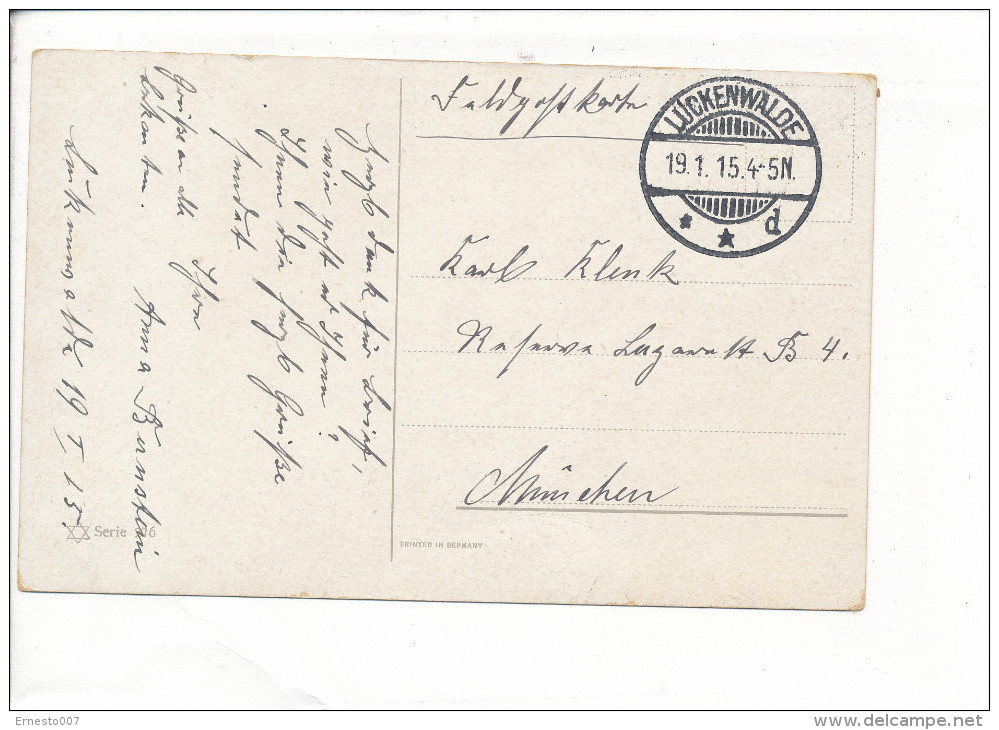 Feldpostkarte
LUCKENWALDE
19.1.15.4-5N.
* * d
Karl Klenk
Reserve Lazarett B 4.
München
Herzl dank für Brief,
wie geht es Ihnen?
Ihnen die herzl Grüße
sendet
Ihre
Anna Bernstein
Grüße an alle
Bekannten.
Luckenwalde 19 I 15.
Serie
PRINTED IN GERMANY
Ernesto007
www.delcampe.net